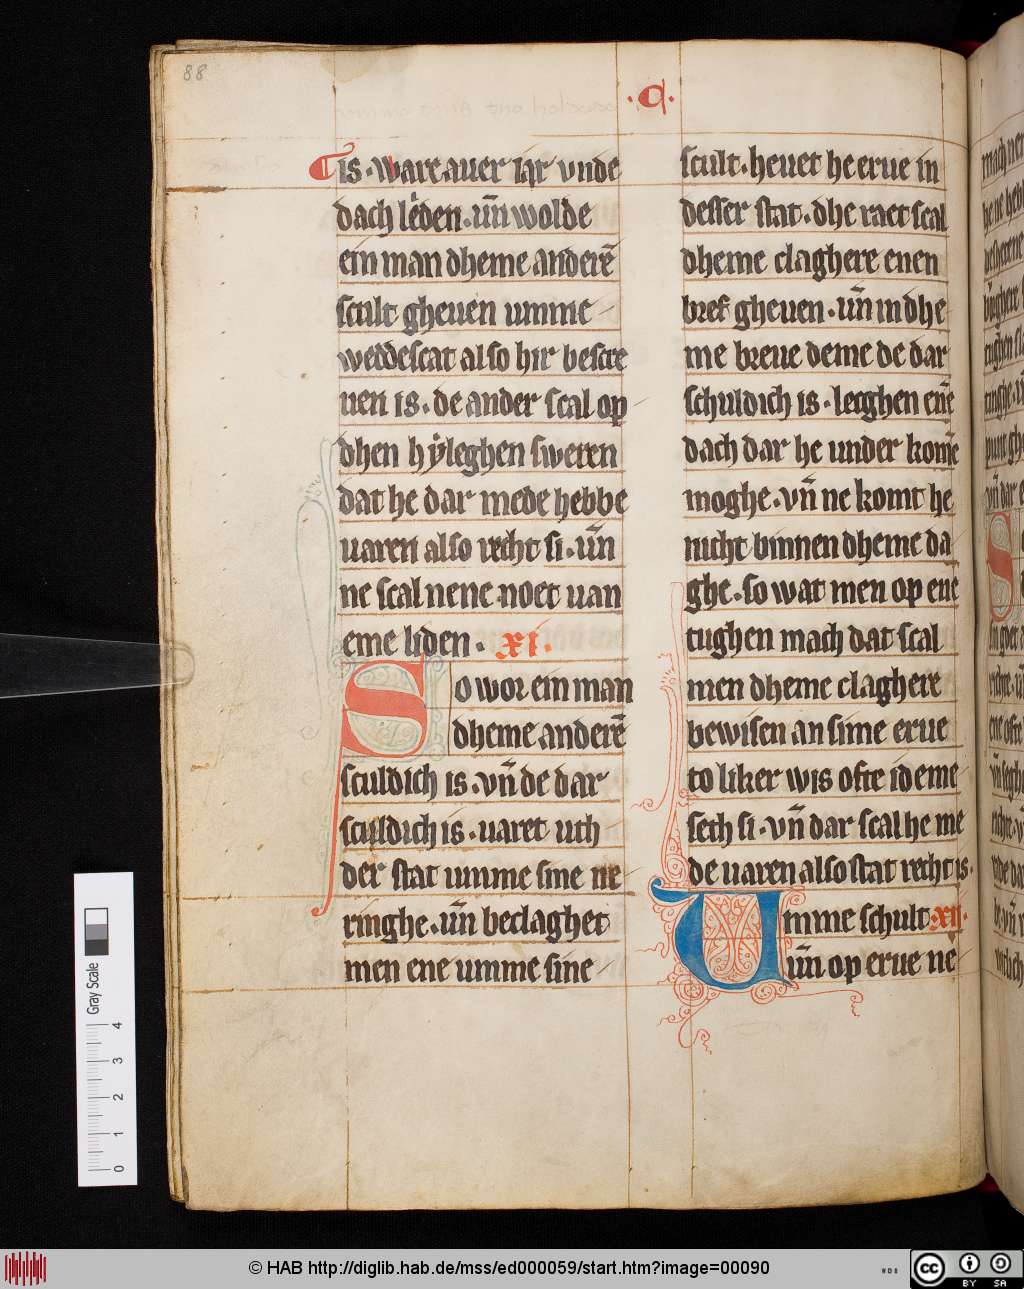 88
·C·
is · ware auer iar vnde
dach leden · vn̄ wolde
ein man dheme anderē
scult gheuen umme
weddescat also hir bescre
uen is · de ander scal op
dhen hẏleghen sweren
dat he dar mede hebbe
uaren also recht si · vn̄
ne scal nene noet uan
eme liden · XI ·
So wor ein man
dheme anderē
sculdich is · vn̄ de dar
sculdich is · uaret uth
der stat umme sine ne
ringhe · vn̄ beclaghet
men ene umme sine
scult · heuet he erue in
desser stat · dhe raet scal
dheme claghere enen
bref gheuen · vn̄ in dhe
me breue deme de dar
schuldich is · legghen enē
dach dar he under komē
moghe · vn̄ ne komt he
nicht binnen dheme da
ghe · so wat men op ene
tughen mach dat scal
men dheme claghere
bewisen an sime erue
to liker wis ofte id eme
sech si · vn̄ dar scal he me
de uaren also stat recht is ·
Umme schult · XII ·
vn̄ op erue ne
Gray Scale
0 1 2 3 4
© HAB http://diglib.hab.de/mss/ed000059/start.htm?image=00090
WDB
cc BY SA